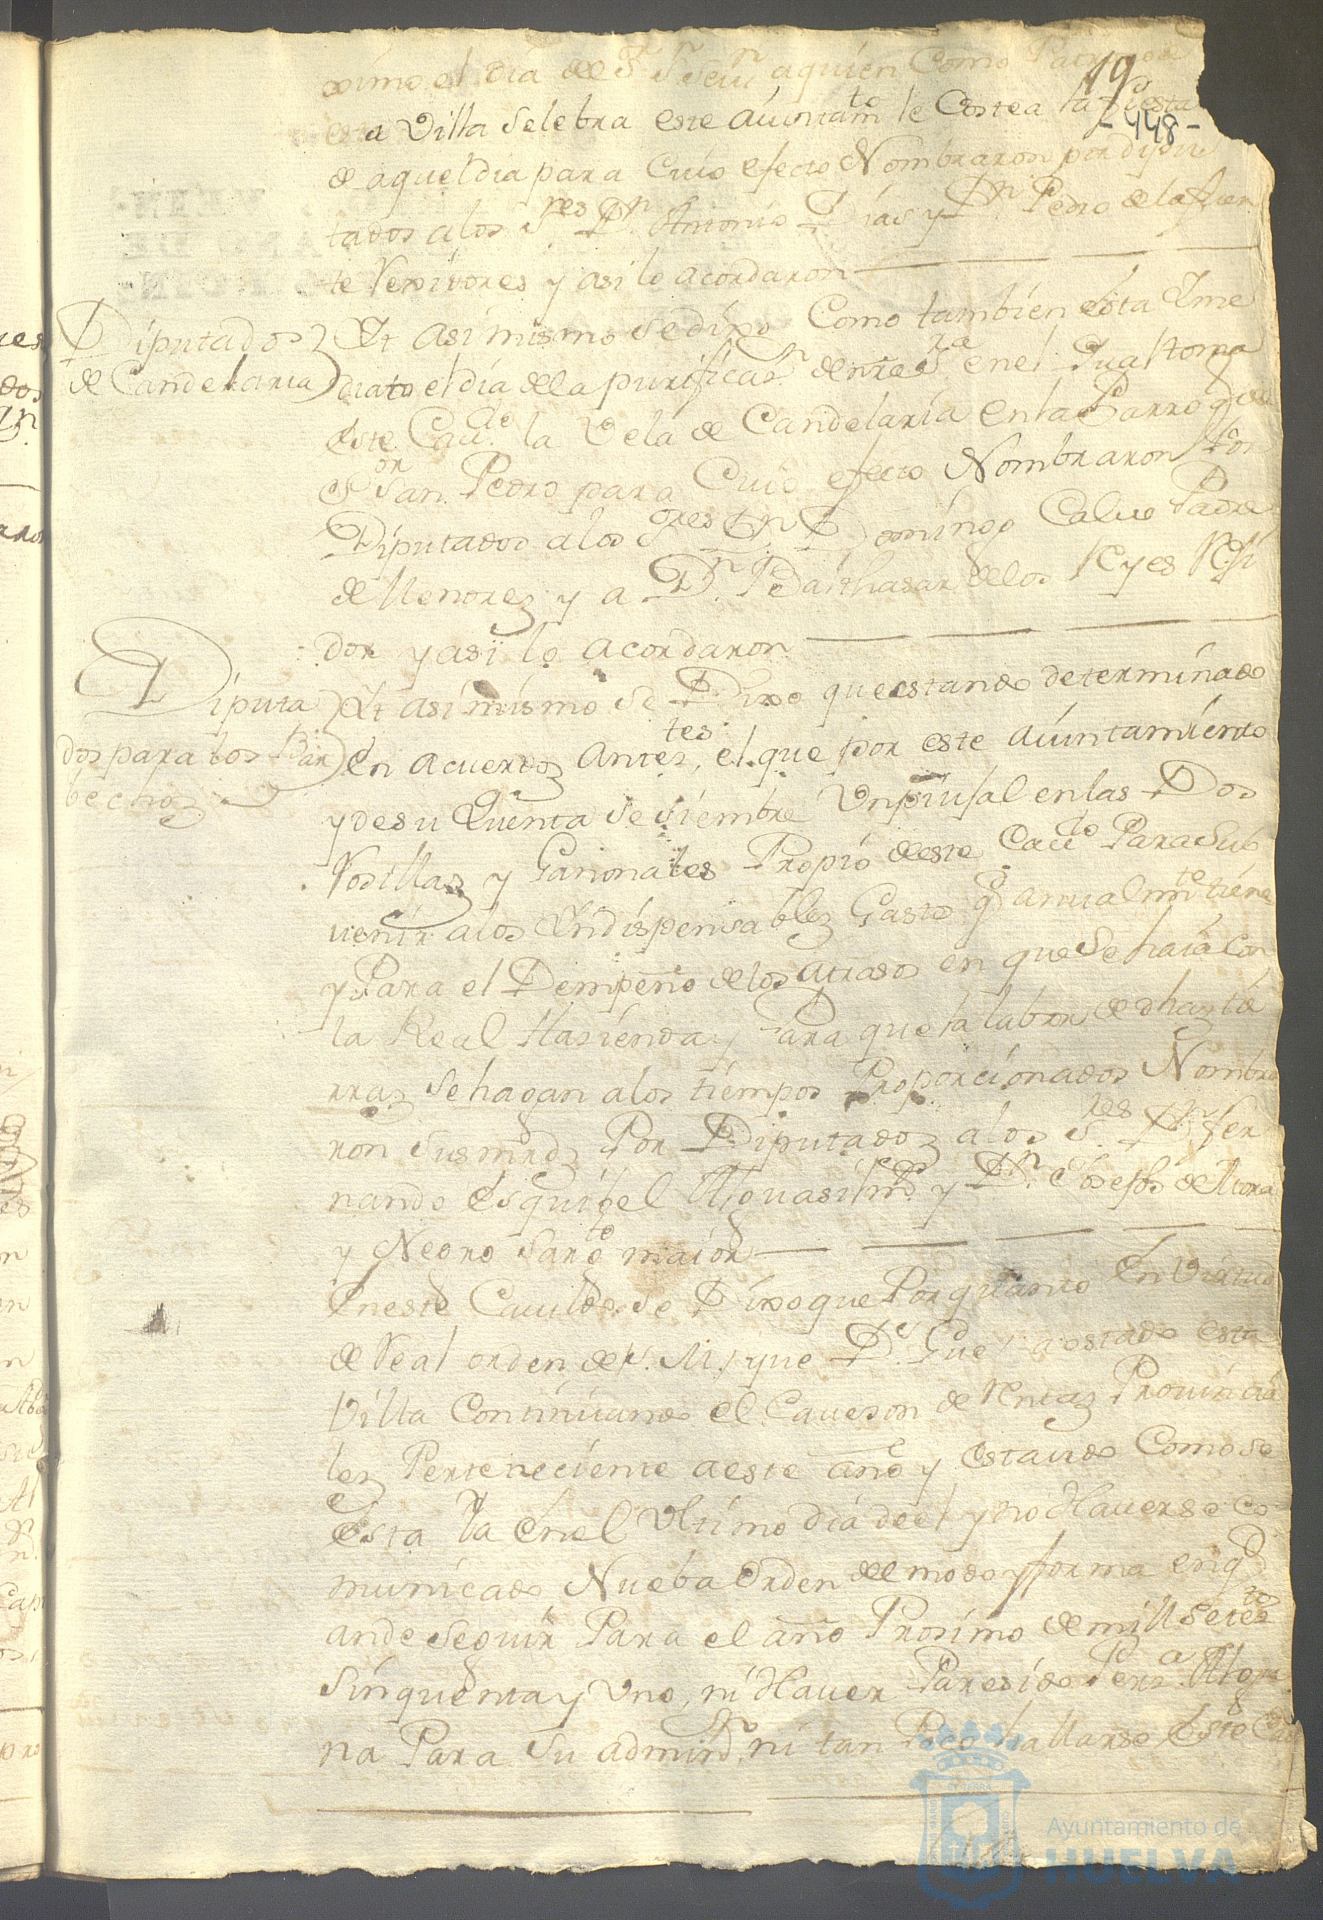 19
-448-
ximo el dia de Sr Sn Sevn aquien Como Patrono de
a Villa Selebra este Aiuntamto le Costea la fiesta
de aquel dia para Cuio efecto Nombraron por diputados
tados a los Sres Dn Antonio Dias y Dn Pedro de la fuen
te Rexidores y asi lo acordaron
Diputados
de Candelaria
Yt asi mismo se dixo Como tambien esta Ime
diato el dia de la purificasn de nra sra en el qual toma
este Cavdo la Vela de Candelaria en la Parroqa de
Sor San Pedro para Cuio efecto Nombraron Por
Diputados a los Sores Dn Domingo Calvo Padre
de Menores y a Dn Balthasar de los Reyes Rexi
dor y asi lo acordaron
Diputa
dos para los Bar
bechos
Yt asi mismo se Dixo que estando determinado
en acuerdos Antestes, el que por este aiuntamiento
y de su Quenta se siembre Un piusal en las Dos
Rosillas y Garionales Propio de este Cavdo Para Sub
uenir a los Yndispensables Gasto q anualmte tiene
y Para el Dempeño de los atrasos en que se haia Con
la Real Hasienda y Para que la labor de dhas tie
rras se hagan a los tiempos Proporcionados Nombra
ron sus mrds Por Diputados a los Sres Dn fer
nando esquibel Alguasil mr y Dn Joseph de Mora
y Negro Sargto maior
En este Cavildo se Dixo que Por quanto En Virtud
de Real orden de S. M. que Ds Gue a estado esta
Villa Continuando el Caveson de Rentas Provincia
les Perteneciente a este año y estando Como se
esta ia en el Ultimo dia de el y no Haverse co
municado Nueba Orden del modo y forma en q
ande Seguir Para el año Prosimo de mill setetos
Sinquenta y Uno, ni Haver Paresido Persa Algu
na Para Su admrn, ni tan Poco hallarse Este Cav
Ayuntamiento de
HUELVA